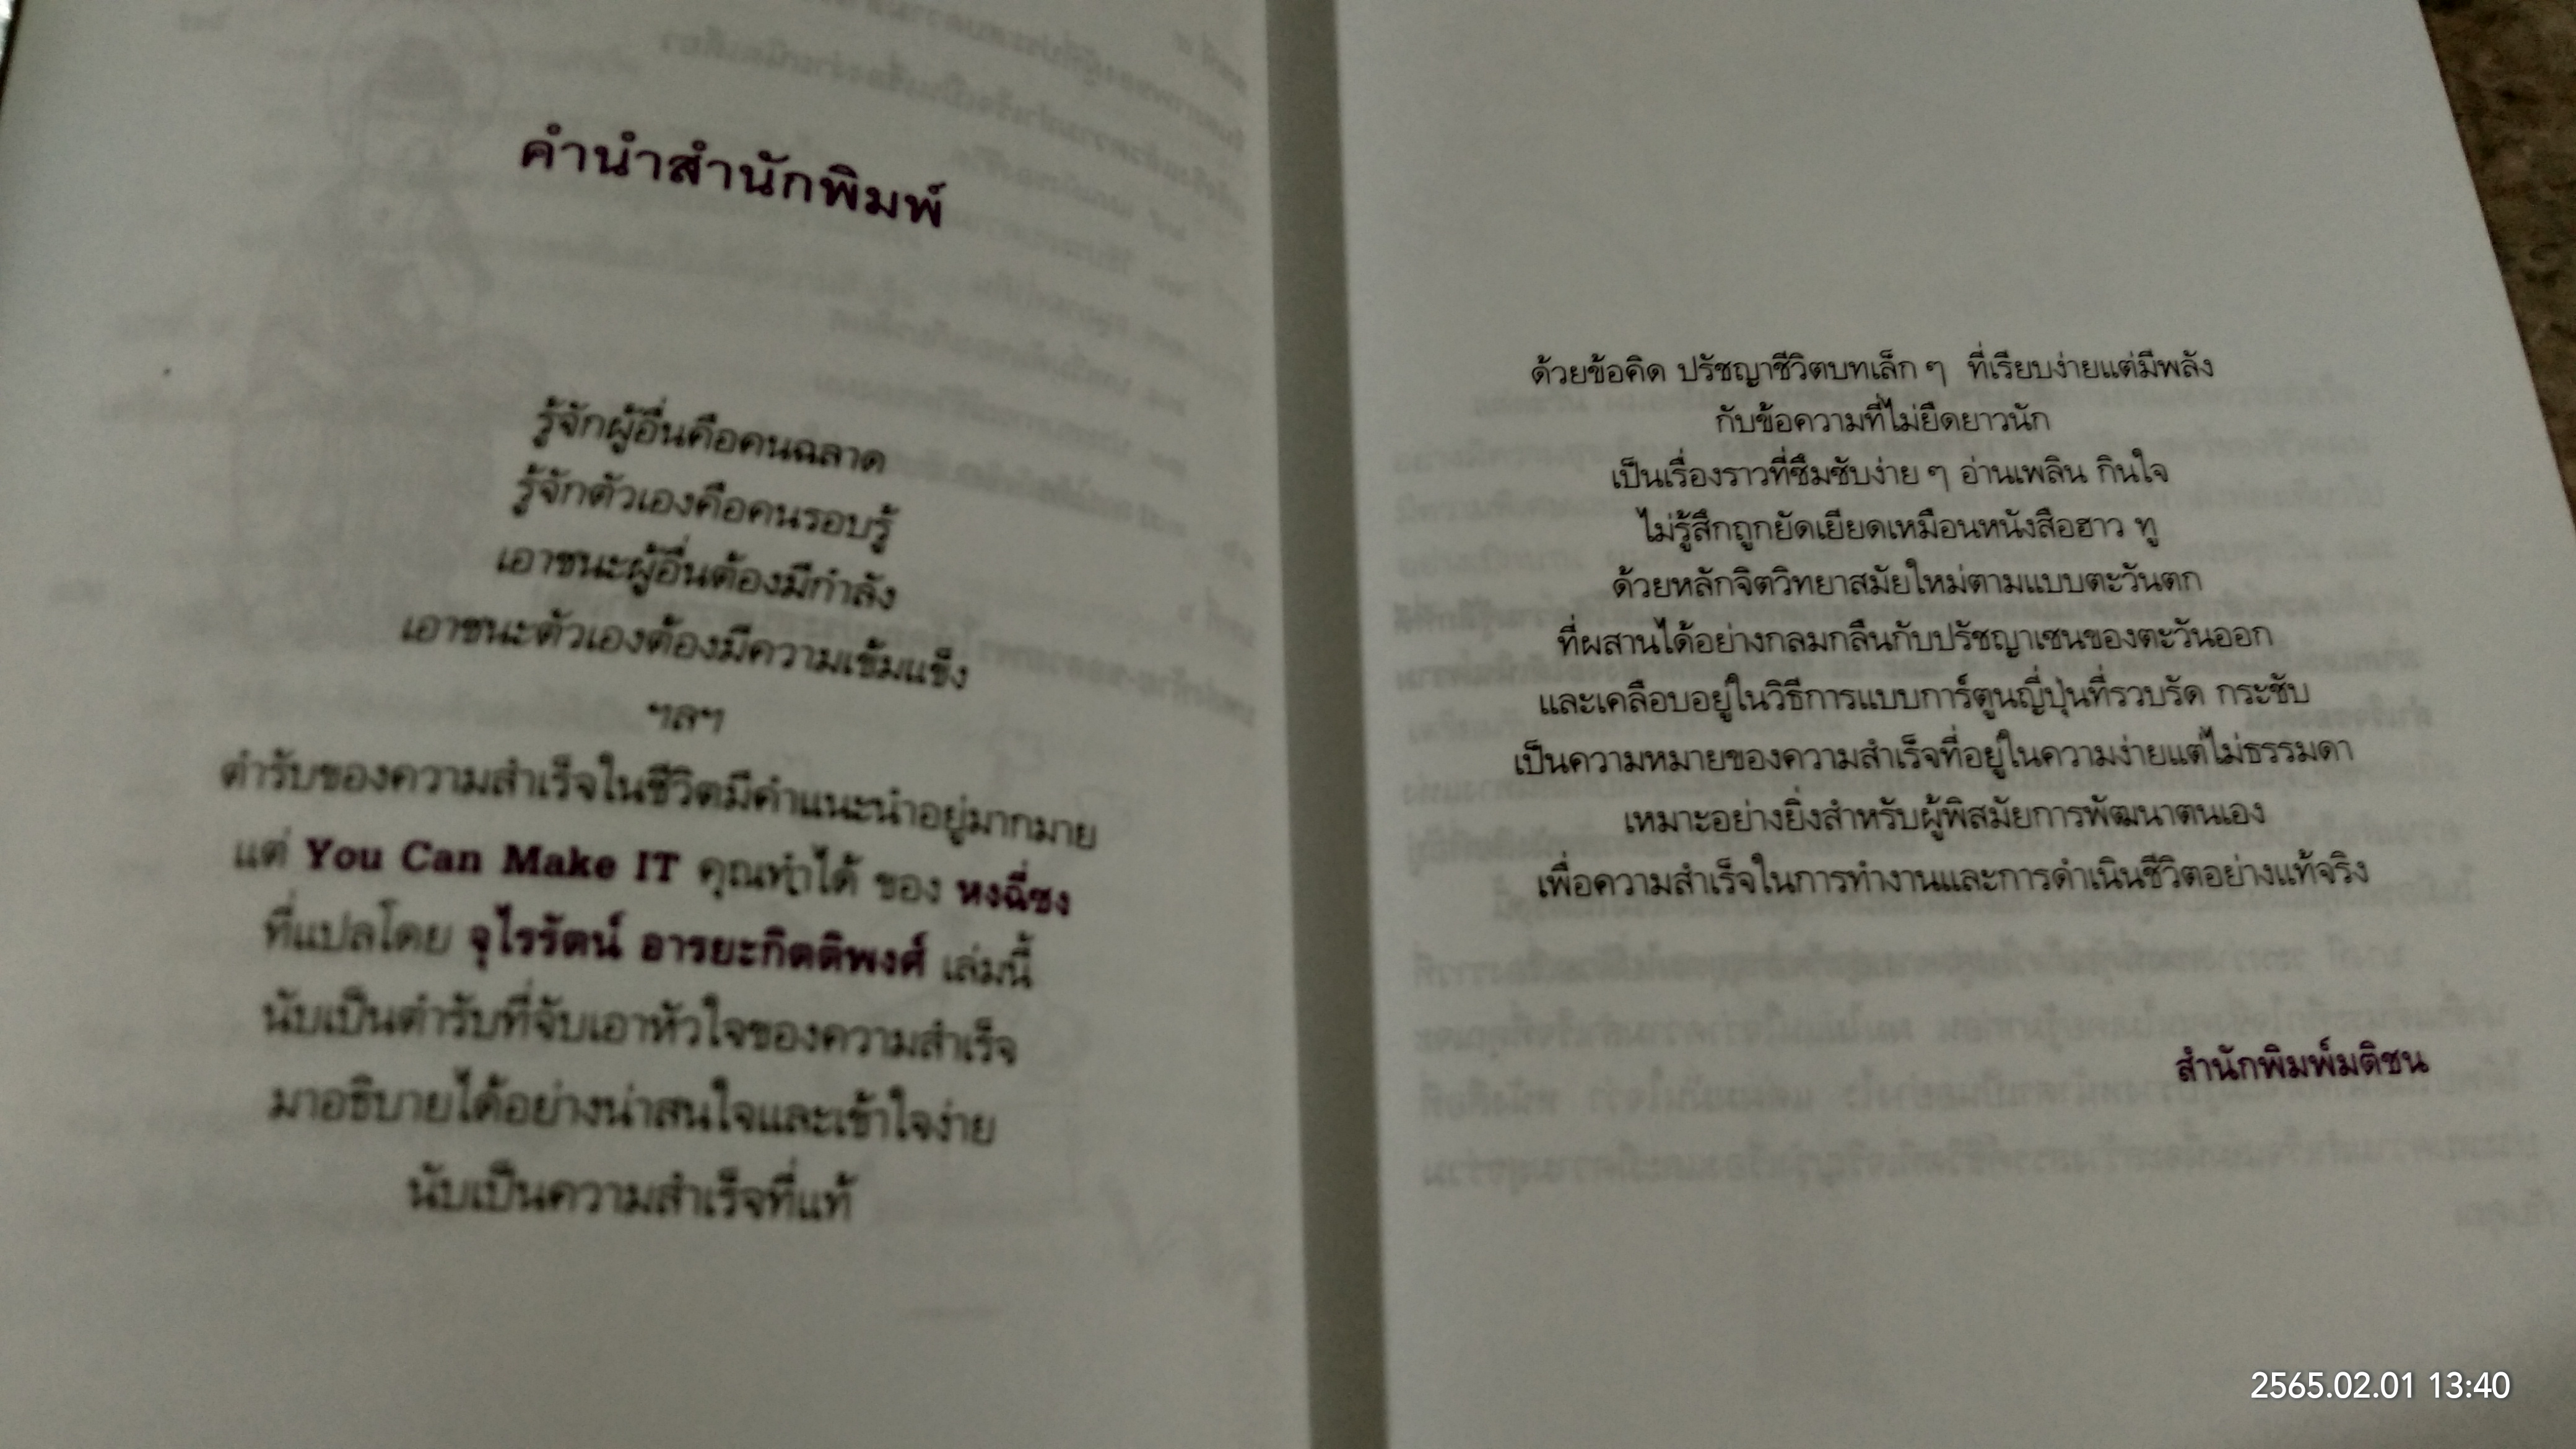 คำนำสำนักพิมพ์
รู้จักผู้อื่นคือคนฉลาด
รู้จักตัวเองคือคนรอบรู้
เอาชนะผู้อื่นต้องมีกำลัง
เอาชนะตัวเองต้องมีความเข้มแข็ง
ฯลฯ
ตำรับของความสำเร็จในชีวิตมีคำแนะนำอยู่มากมาย
แต่ You Can Make IT คุณทำได้ ของ หงฉี่ชง
ที่แปลโดย จุไรรัตน์ อารยะกิตติพงศ์ เล่มนี้
นับเป็นตำรับที่จับเอาหัวใจของความสำเร็จ
มาอธิบายได้อย่างน่าสนใจและเข้าใจง่าย
นับเป็นความสำเร็จที่แท้
ด้วยข้อคิด ปรัชญาชีวิตบทเล็ก ๆ ที่เรียบง่ายแต่มีพลัง
กับข้อความที่ไม่ยืดยาวนัก
เป็นเรื่องราวที่ซึมซับง่าย ๆ อ่านเพลิน กินใจ
ไม่รู้สึกถูกยัดเยียดเหมือนหนังสือฮาว ทู
ด้วยหลักจิตวิทยาสมัยใหม่ตามแบบตะวันตก
ที่ผสานได้อย่างกลมกลืนกับปรัชญาเซนของตะวันออก
และเคลือบอยู่ในวิธีการแบบการ์ตูนญี่ปุ่นที่รวบรัด กระชับ
เป็นความหมายของความสำเร็จที่อยู่ในความง่ายแต่ไม่ธรรมดา
เหมาะอย่างยิ่งสำหรับผู้พิสมัยการพัฒนาตนเอง
เพื่อความสำเร็จในการทำงานและการดำเนินชีวิตอย่างแท้จริง
สำนักพิมพ์มติชน
2565.02.01 13:40